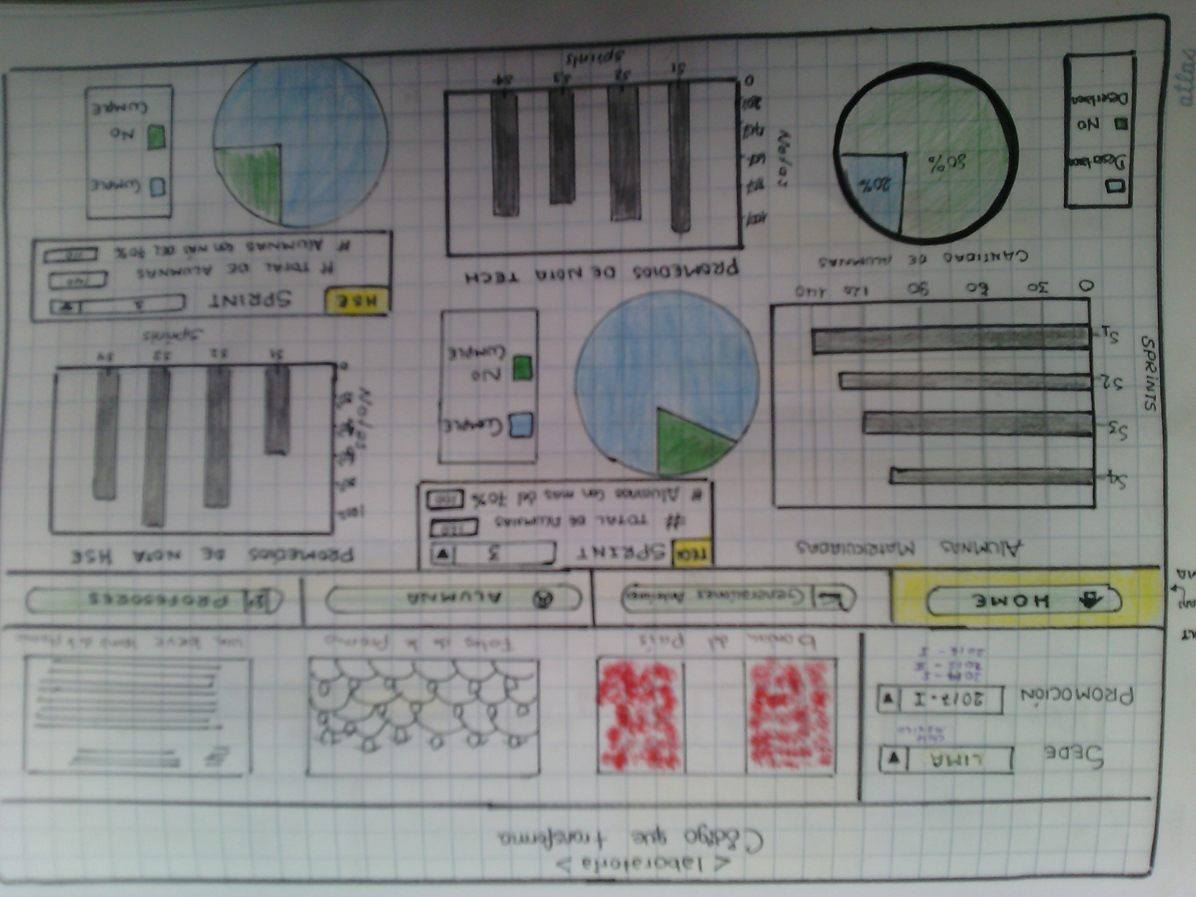 < laboratoria >
Código que transforma
SEDE LIMA
PROMOCIÓN 2017-I
bandera del País
Fotos de la promo
un breve
HOME
Generaciones
ALUMNA
PROFESORES
ALUMNAS MATRICULADAS
SPRINTS
S4
S3
S2
S1
0 30 60 90 120 140
CANTIDAD DE ALUMNAS
80%
20%
Desertaron
No
Desertaron
TECH SPRINT 3
# TOTAL DE ALUMNAS
# Alumnas con mas del 70%
CUMPLE
NO
CUMPLE
PROMEDIOS DE NOTA TECH
Notas
0
S1 S2 S3 S4
sprints
PROMEDIOS DE NOTA HSE
Notas
0
S1 S2 S3 S4
sprints
HSE SPRINT
# TOTAL DE ALUMNAS
# ALUMNAS con MÁS DEL 70%
CUMPLE
NO
CUMPLE